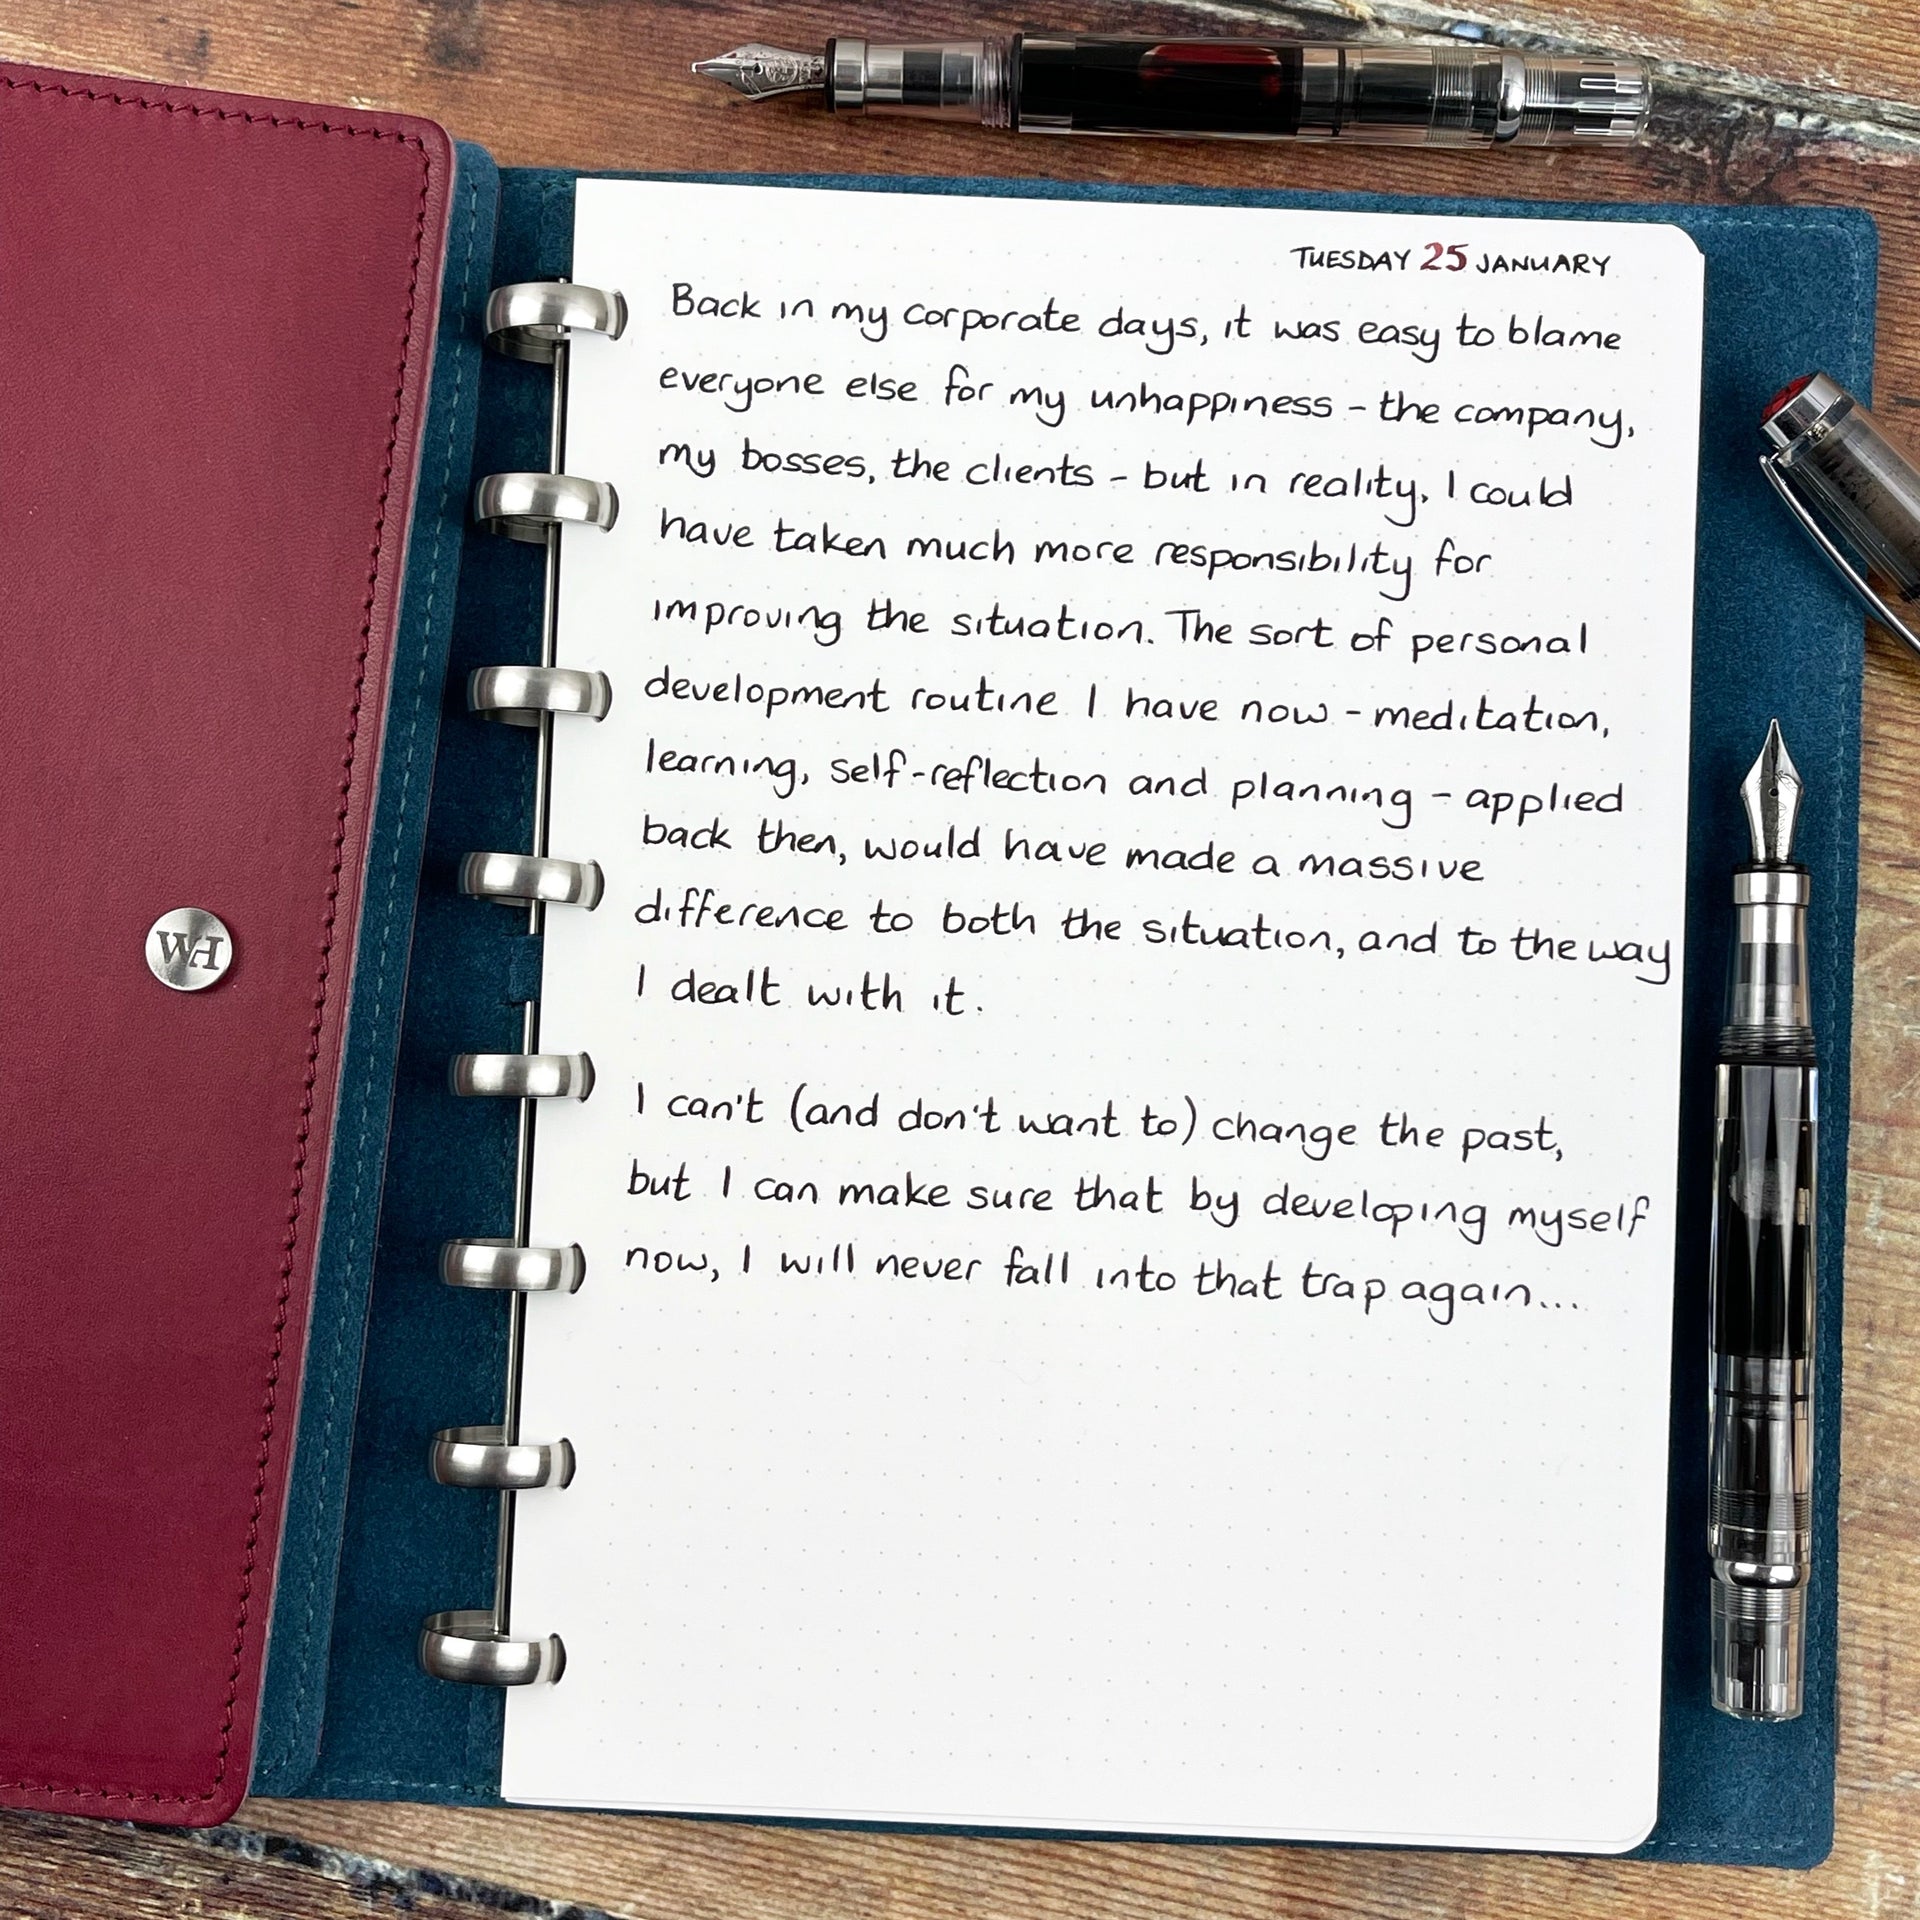 TUESDAY 25 JANUARY
Back in my corporate days, it was easy to blame
everyone else for my unhappiness - the company,
my bosses, the clients - but in reality, I could
have taken much more responsibility for
improving the situation. The sort of personal
development routine I have now - meditation,
learning, self-reflection and planning - applied
back then, would have made a massive
difference to both the situation, and to the way
I dealt with it.
I can't (and don't want to) change the past,
but I can make sure that by developing myself
now, I will never fall into that trap again...
WH